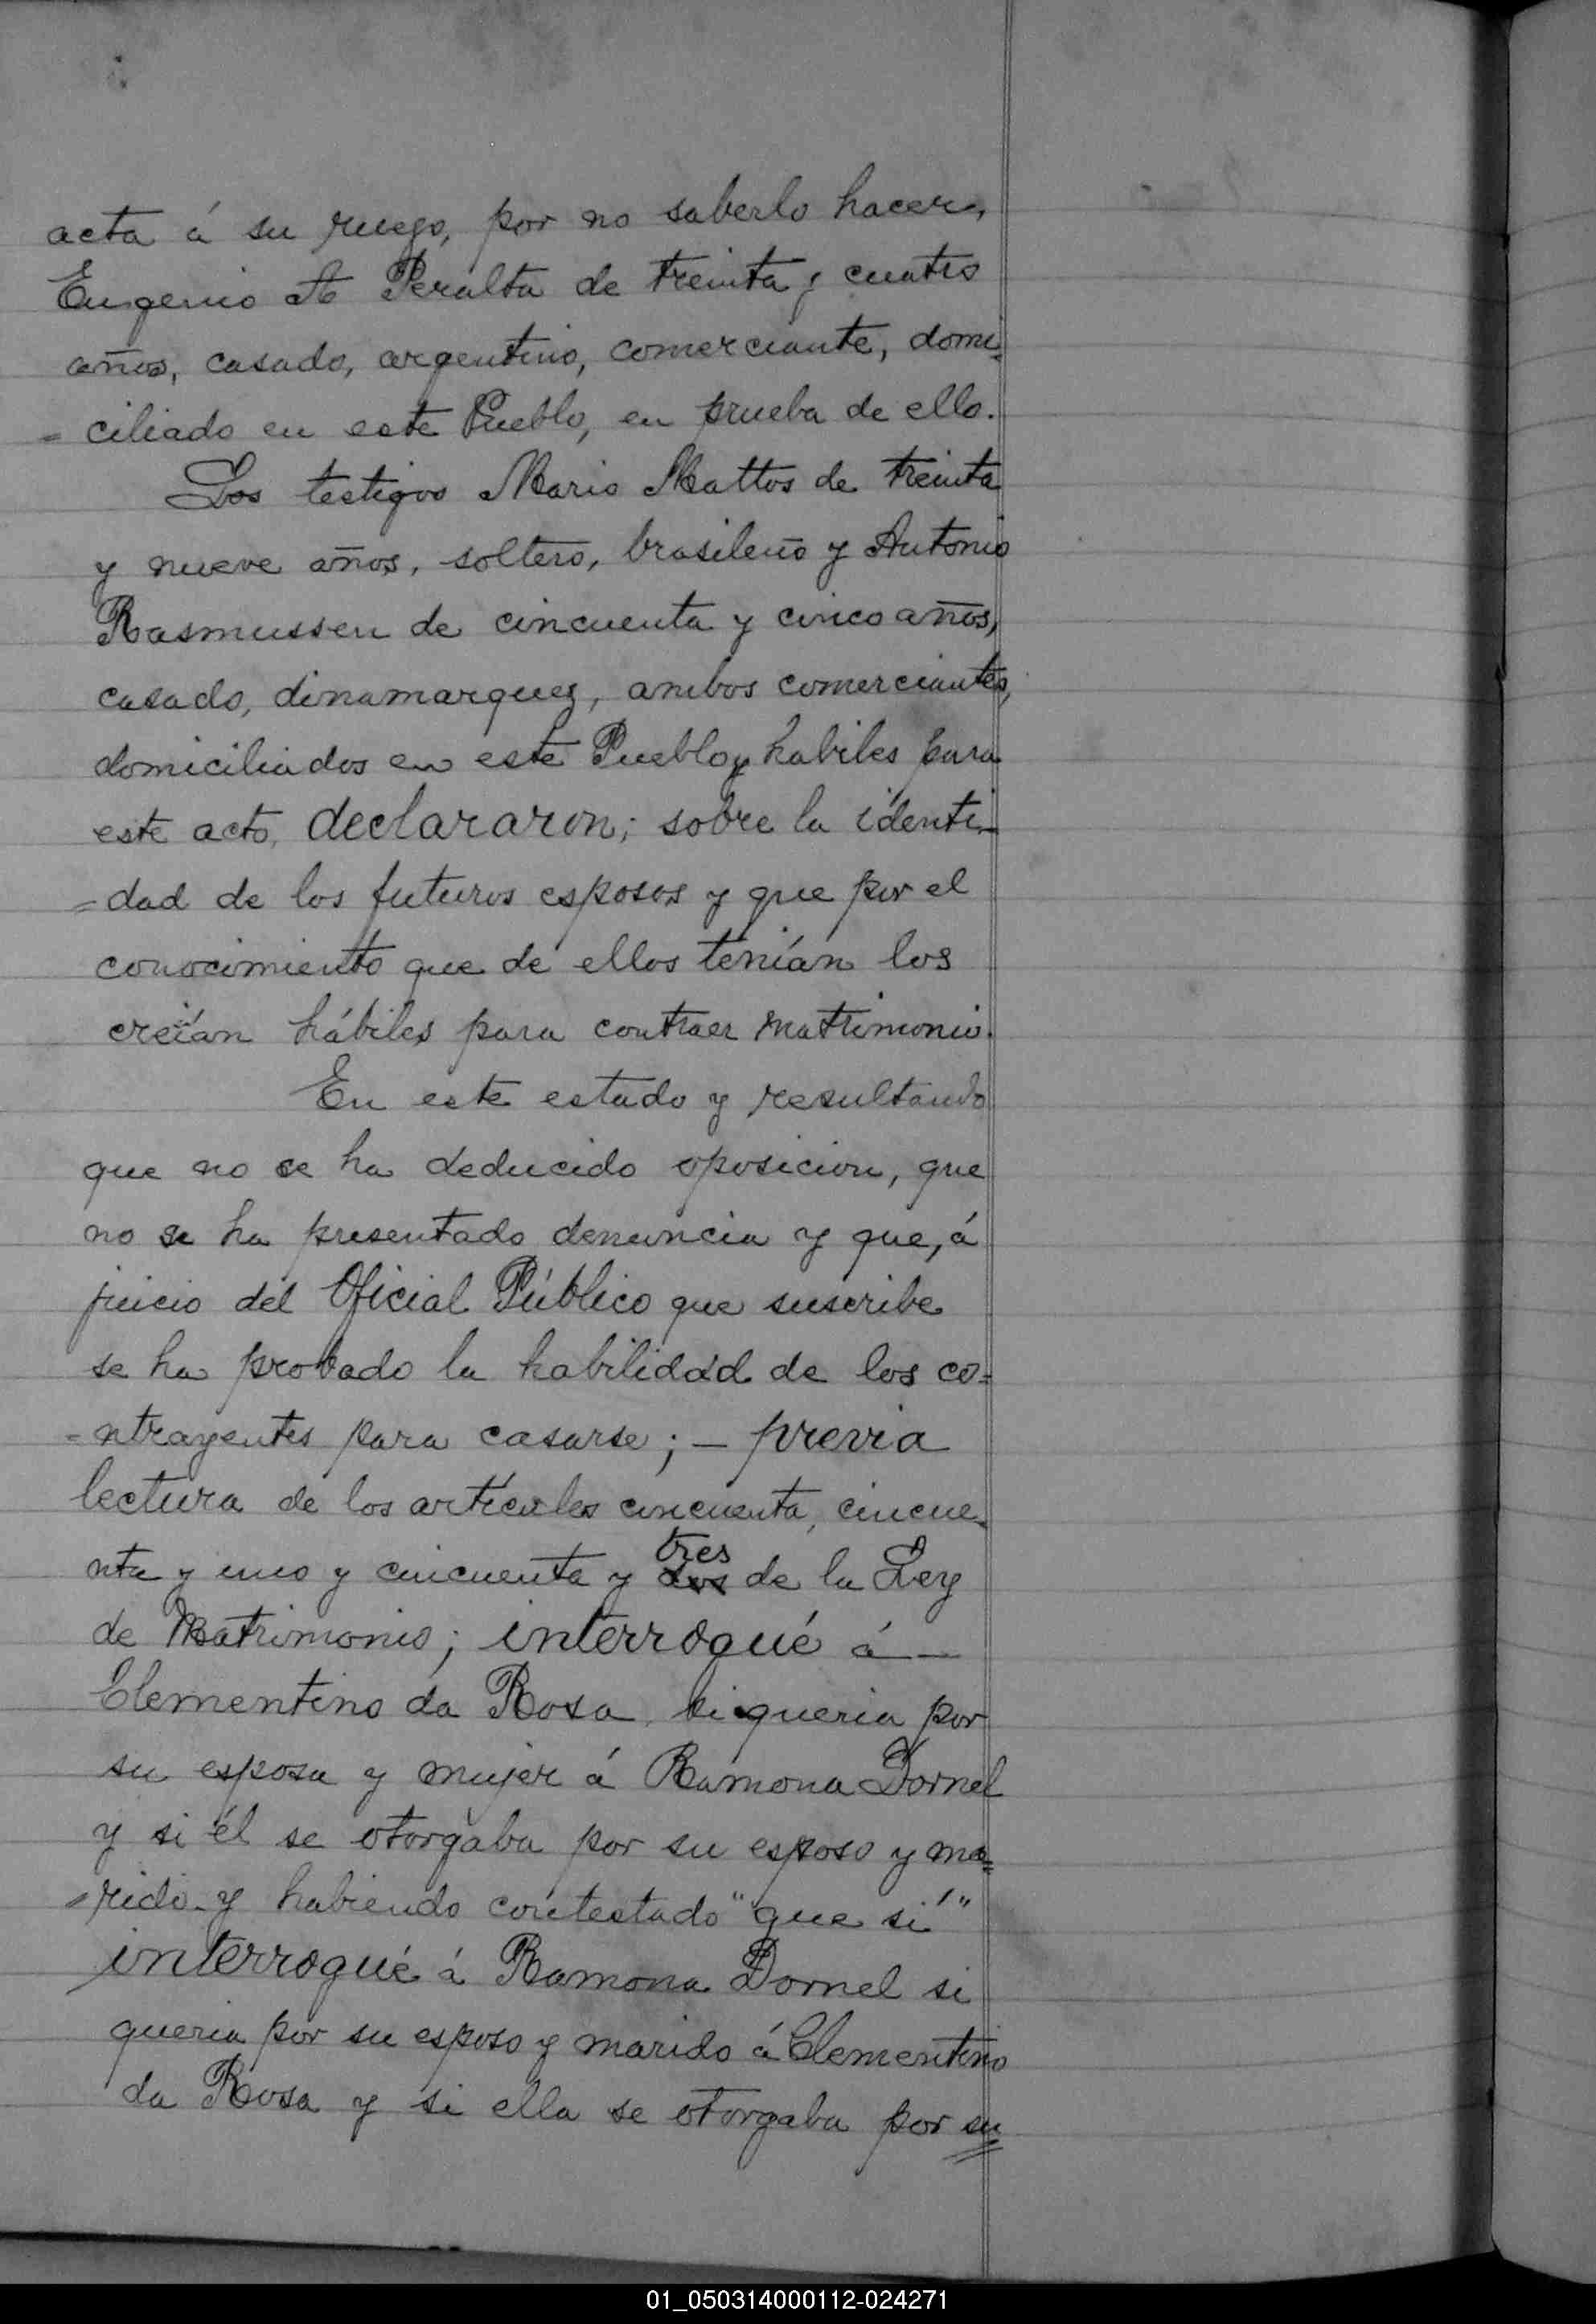 acta á su ruego, por no saberlo hacer,
Eugenio A Peralta de treinta y cuatro
años, casado, argentino, comerciante, domi-
=ciliado en este Pueblo, en prueba de ello.
Los testigos Mario Mattos de treinta
y nueve años, soltero, brasileño y Antonio
Rasmussen de cincuenta y cinco años,
casado, dinamarquez, ambos comerciantes,
domiciliados en este Pueblo y habiles para
este acto, declararon; sobre la identi-
=dad de los futuros esposos y que por el
conocimiento que de ellos tenían los
creían hábiles para contraer matrimonio.
En este estado y resultando
que no se ha deducido oposicion, que
no se ha presentado denuncia y que, á
juicio del Oficial Público que suscribe
se ha probado la habilidad de los co=
=ntrayentes para casarse; - previa
lectura de los artículos cincuenta, cincue-
nta y uno y cincuenta y dos tres de la Ley
de Matrimonio; interrogué á —
Clementino da Rosa si queria por
su esposa y mujer á Ramona Dornel
y si él se otorgaba por su esposo y ma=
=rido y habiendo contestado "que sí"
interrogué á Ramona Dornel si
queria por su esposo y marido á Clementino
da Rosa y si ella se otorgaba por su
01_050314000112-024271